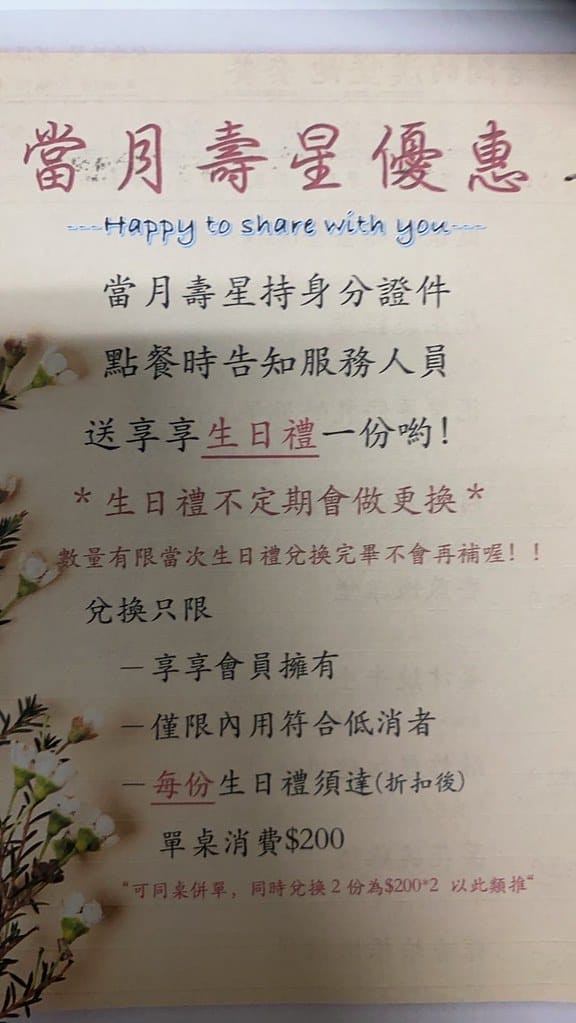 當月壽星優惠
---Happy to share with you---
當月壽星持身分證件
點餐時告知服務人員
送享享生日禮一份喲!
*生日禮不定期會做更換*
數量有限當次生日禮兌換完畢不會再補喔!!
兌換只限
–享享會員擁有
–僅限內用符合低消者
–每份生日禮須達(折扣後)
單桌消費$200
"可同桌併單,同時兌換2份為$200*2 以此類推"